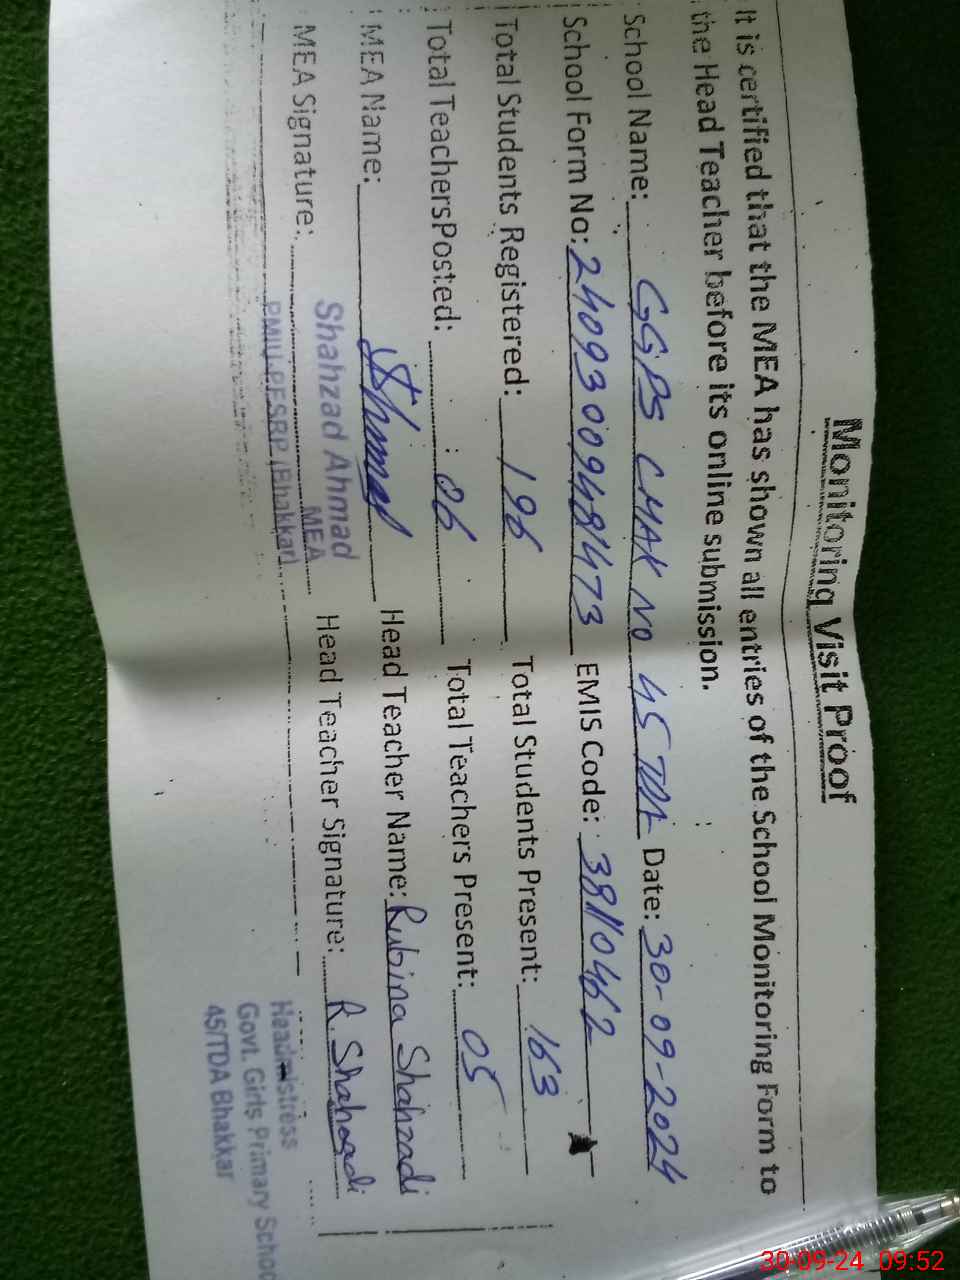 Monitoring Visit Proof
It is certified that the MEA has shown all entries of the School Monitoring Form to
the Head Teacher before its online submission.
School Name: GGPS CHAK NO 45 TDA Date: 30-09-2024
School Form No: 24093009481473 EMIS Code: 38110462
Total Students Registered: 196 Total Students Present: 163
Total TeachersPosted: 06 Total Teachers Present: 05
MEA Name: Head Teacher Name: Rubina Shahzadi
MEA Signature: Head Teacher Signature: R. Shahzadi
Shahzad Ahmad
MEA
PMIU-PESRP (Bhakkar)
Headmistress
Govt. Girls Primary School
45/TDA Bhakkar
30-09-24 09:52